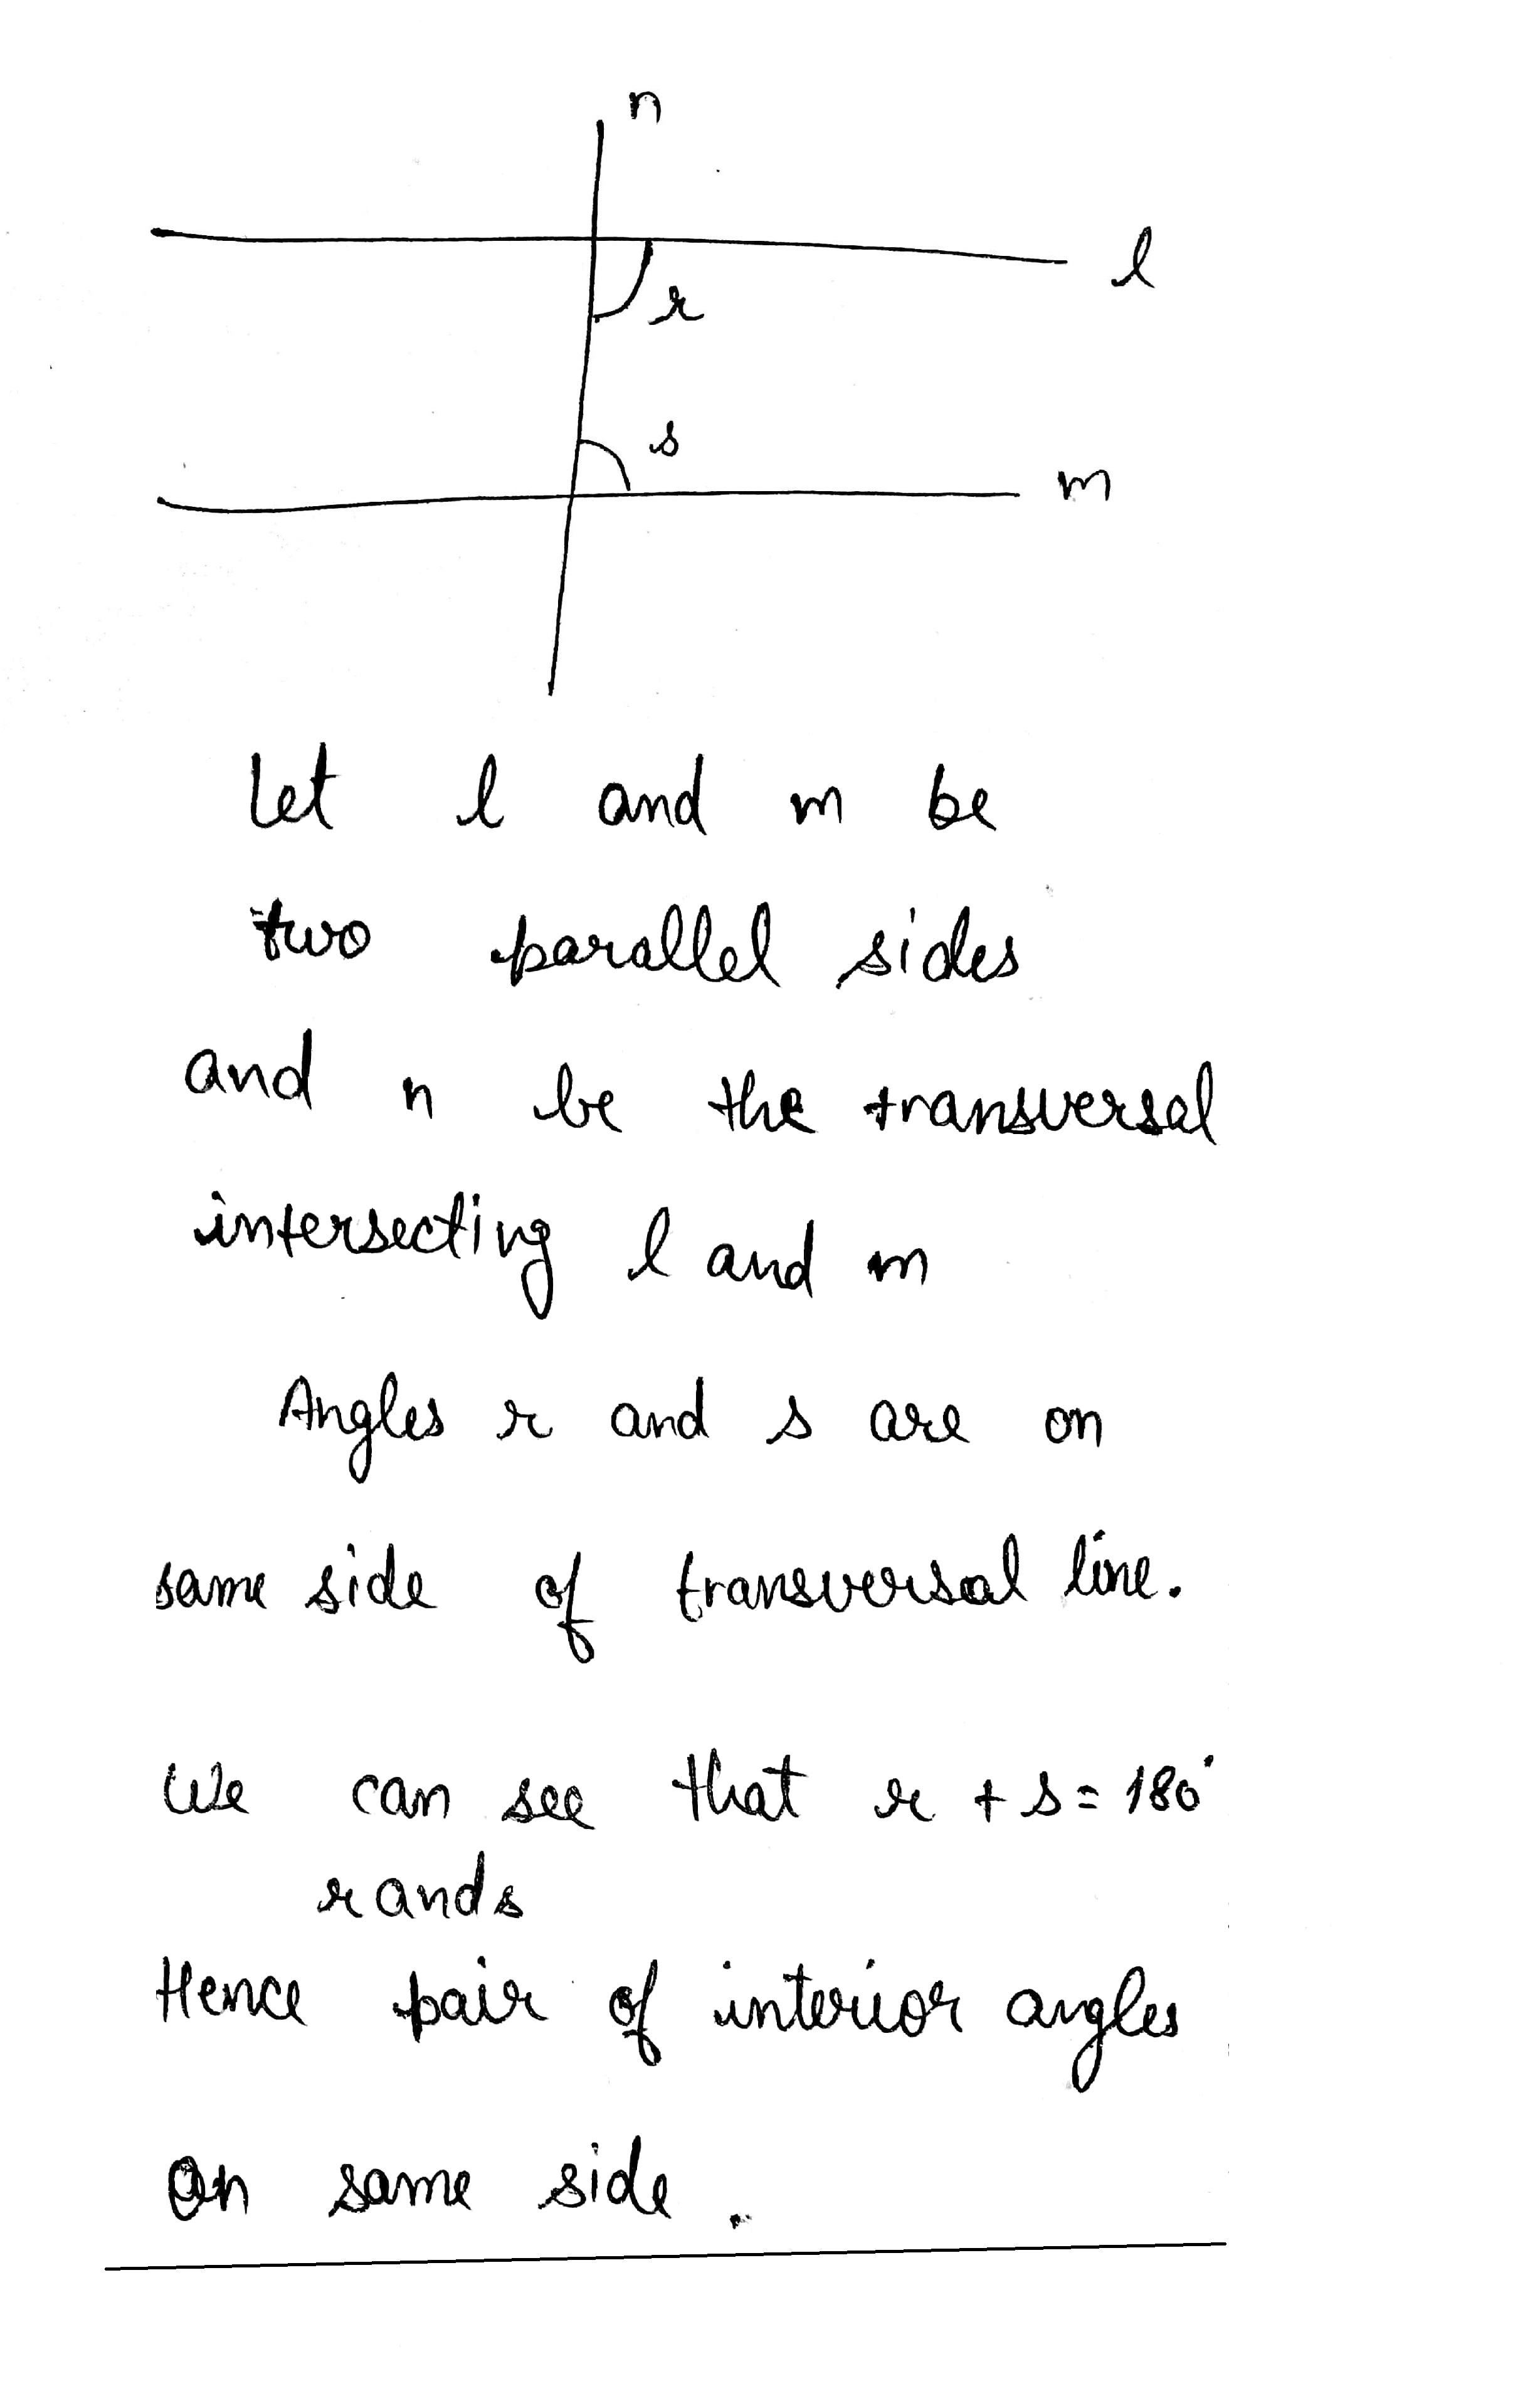 n
l
r
s
m
Let l and m be
two parallel sides
and n be the transversal
intersecting l and m
Angles r and s are on
same side of transversal line.
We can see that r + s = 180°
r and s
Hence pair of interior angles
on same side.